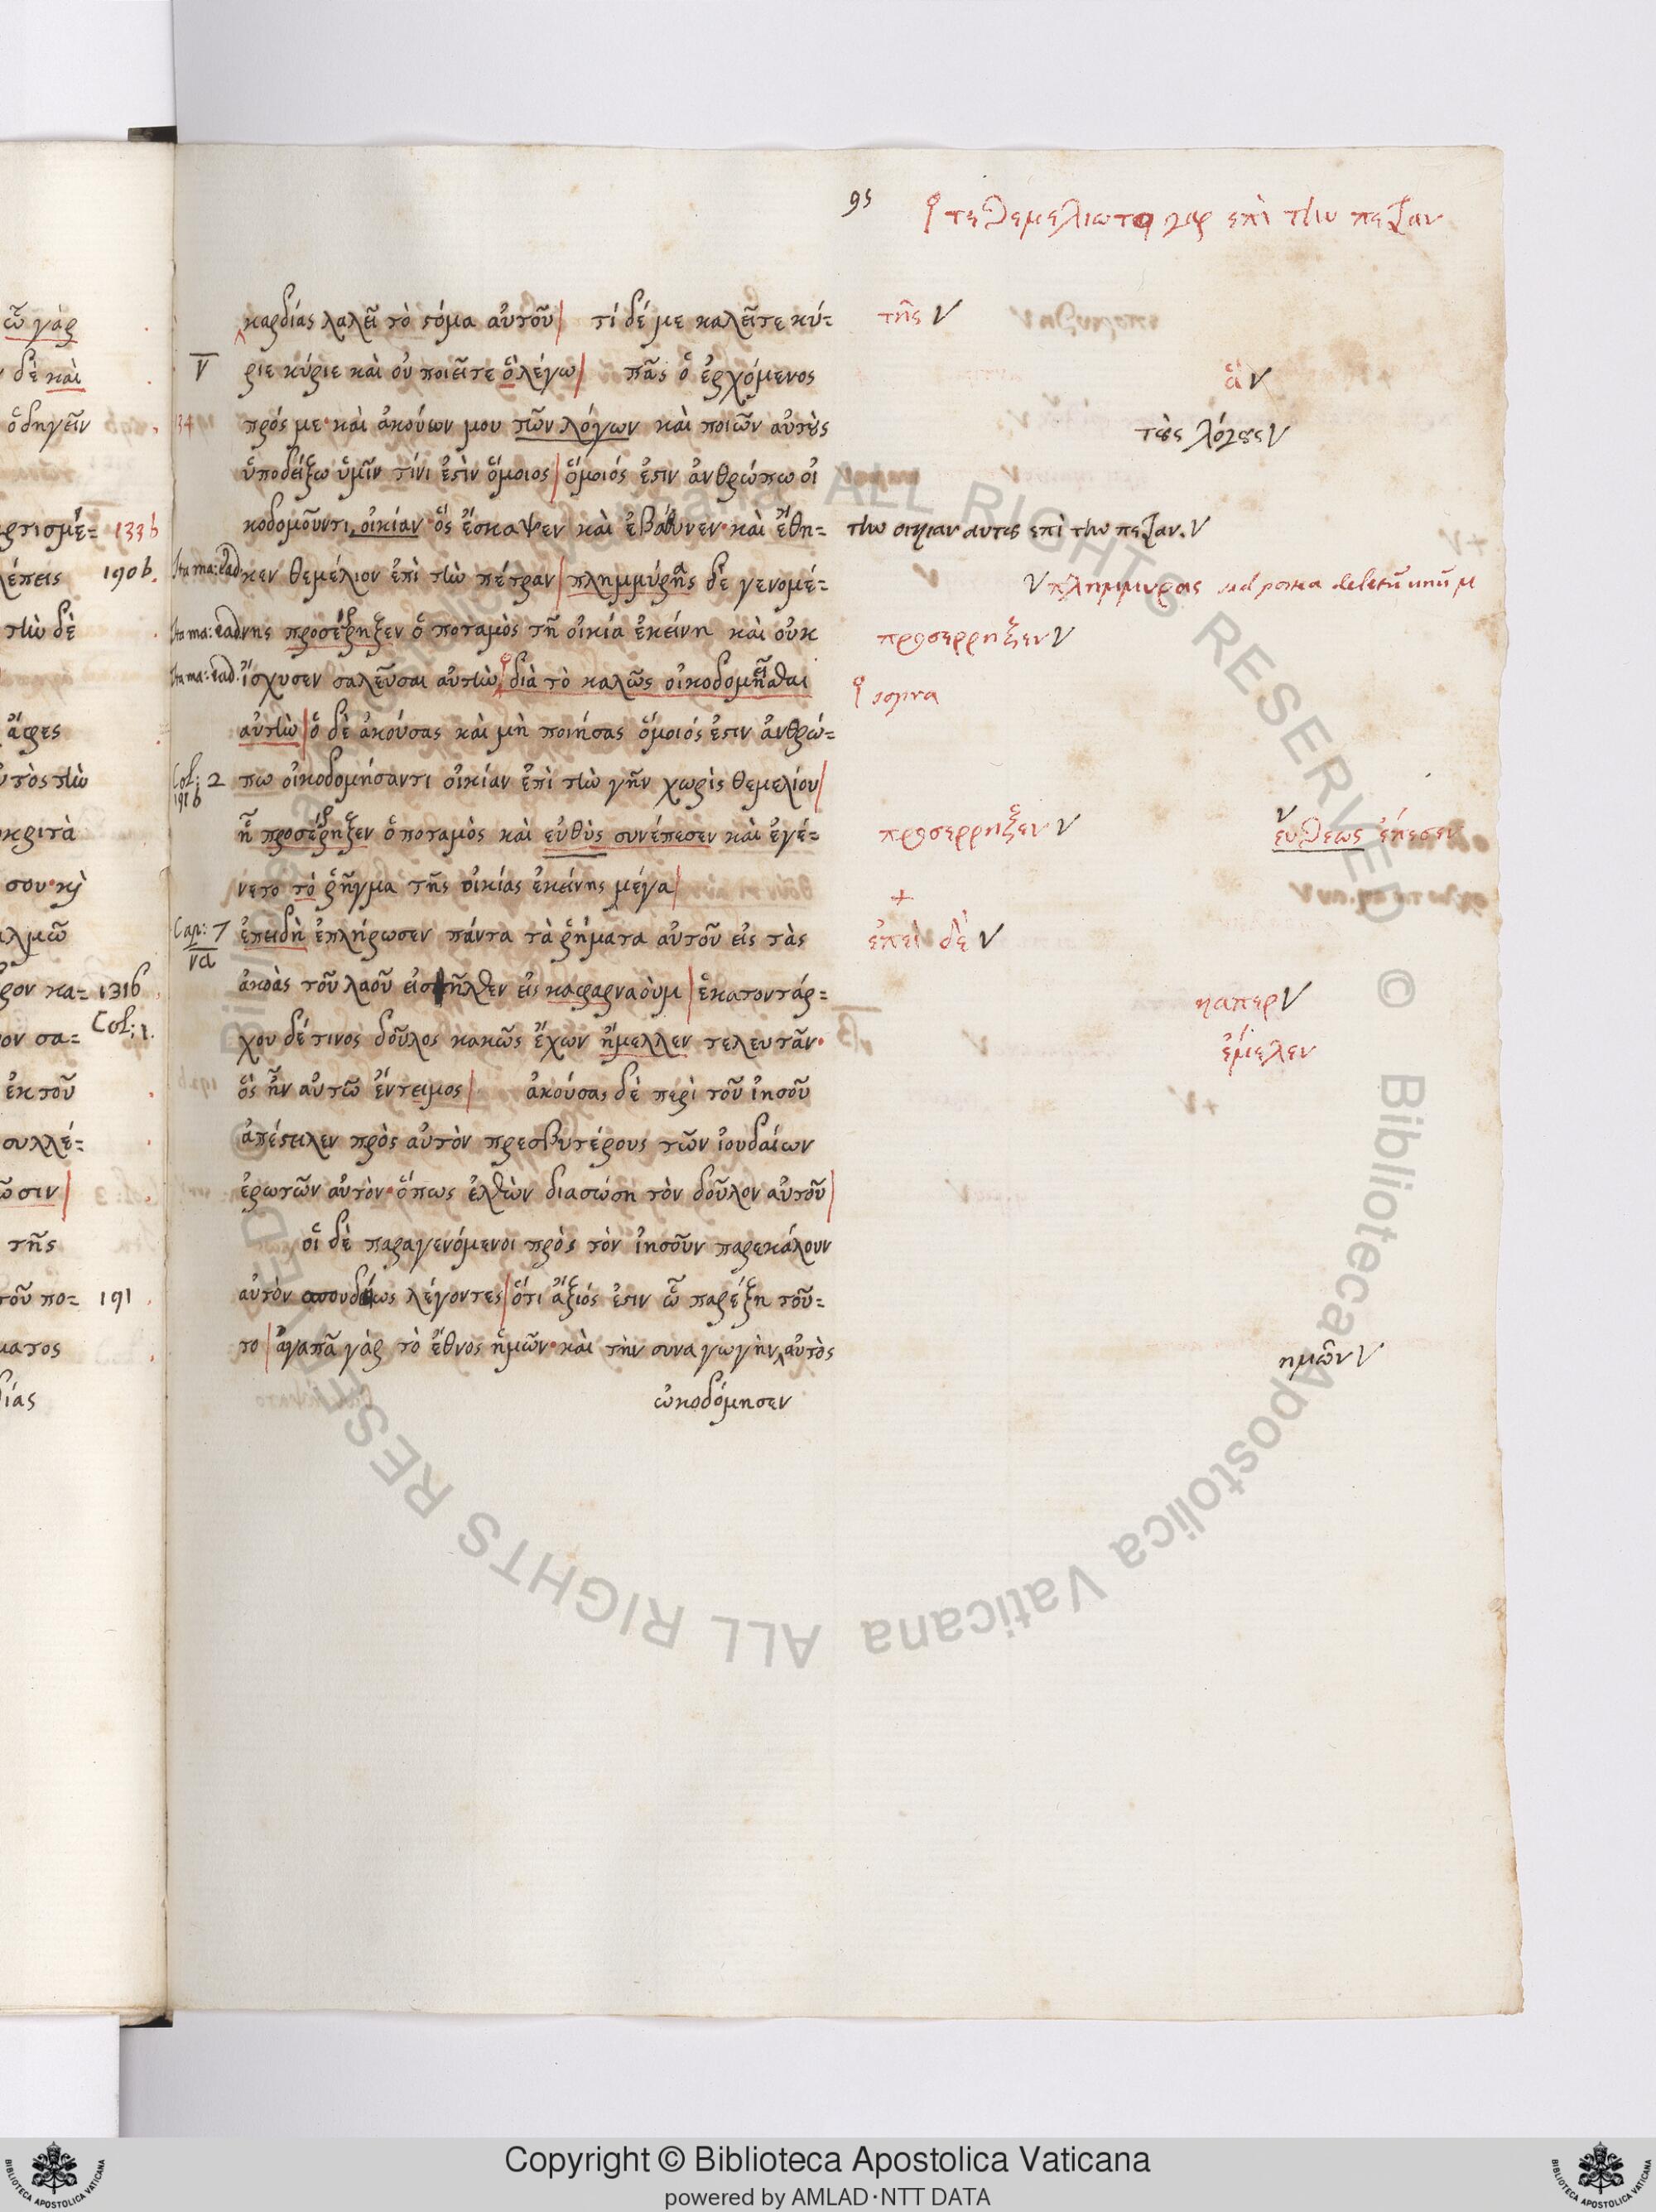 95
τεθεμελιωτο γαρ επι την πετραν
καρδίας λαλεῖ τὸ στόμα αὐτοῦ| τί δέ με καλεῖτε κύ= τῆς V
V ριε κύριε καὶ οὐ ποιεῖτε ὃ λέγω| πᾶς ὁ ἐρχόμενος ἃ V
πρός με· καὶ ἀκούων μου τῶν λόγων καὶ ποιῶν αὐτοὺς τοὺς λόγους V
ὑποδείξω ὑμῖν τίνι ἐστὶν ὅμοιος| ὅμοιός ἐστιν ἀνθρώπω οἰ
κοδομοῦντι οἰκίαν· ὅς ἔσκαψεν καὶ ἐβάθυνεν· καὶ ἔθη= την οικιαν αυτου επὶ την πετραν. V
Ita ma: ead: κεν θεμέλιον ἐπὶ τὴν πέτραν| πλημμύρης δὲ γενομέ= V πλημμυρας sed postea deletũ unũ μ
Ita ma: ead νης προσέρηξεν ὁ ποταμὸς τῆ οἰκία ἐκείνη καὶ οὐκ προσερρηξεν V
Ita ma: ead. ἴσχυσεν σαλεῦσαι αὐτὴν| διὰ τὸ καλῶς οἰκοδομῆσθαι sopra
αὐτὴν| ὁ δὲ ἀκούσας καὶ μὴ ποιήσας ὅμοιός ἐστιν ἀνθρώ=
Col: 2 191b πω οἰκοδομήσαντι οἰκίαν ἐπὶ τὴν γῆν χωρὶς θεμελίου|
ἧ προσέρηξεν ὁ ποταμὸς καὶ εὐθὺς συνέπεσεν καὶ ἐγέ= προσερρηξεν V V ευθεως ἐπεσεν
νετο τὸ ῥῆγμα τῆς οἰκίας ἐκείνης μέγα| +
Cap: 7 ἐπειδὴ ἐπλήρωσεν πάντα τὰ ῥήματα αὐτοῦ εἰς τὰς ἐπεὶ δὲ V
ἀκοὰς τοῦ λαοῦ εἰσῆλθεν εἰς καφαρναοὺμ| ἑκατοντάρ= καπερ V
χου δέ τινος δοῦλος κακῶς ἔχων ἤμελλεν τελευτᾶν· ἐμελεν
ὅς ἦν αὐτῶ ἔντειμος| ἀκούσας δὲ περὶ τοῦ ἰησοῦ
ἀπέστειλεν πρὸς αὐτὸν πρεσβυτέρους τῶν ἰουδαίων
ἐρωτῶν αὐτὸν· ὅπως ἐλθὼν διασώση τὸν δοῦλον αὐτοῦ|
οἱ δὲ παραγενόμενοι πρὸς τὸν ἰησοῦν παρεκάλουν
αὐτὸν σπουδαίως λέγοντες| ὅτι ἄξιός ἐστιν ὧ παρέξη τοῦ=
το| ἀγαπᾶ γὰρ τὸ ἔθνος ἡμῶν· καὶ τὴν συναγωγὴν αὐτὸς ημῶν V
ὠκοδόμησεν
ὧ γὰρ
δὲ καὶ
ὁδηγεῖν
ρτισμέ= 133b
λέπεις 190b.
τὴν δὲ
ἄφες
τὸς τὴν
κριτὰ
σου· κὶ
αλμῶ
ρον κα= 131b
ον σα= Col: 1.
ἐκ τοῦ
συλλέ=
ῶσιν|
τῆς
τοῦ πο= 191
ματος
δίας
ALL RIGHTS RESERVED © Biblioteca Apostolica Vaticana ALL RIGHTS RESERVED ©
Copyright © Biblioteca Apostolica Vaticana
powered by AMLAD·NTT DATA
BIBLIOTECA APOSTOLICA VATICANA
BIBLIOTECA APOSTOLICA VATICANA